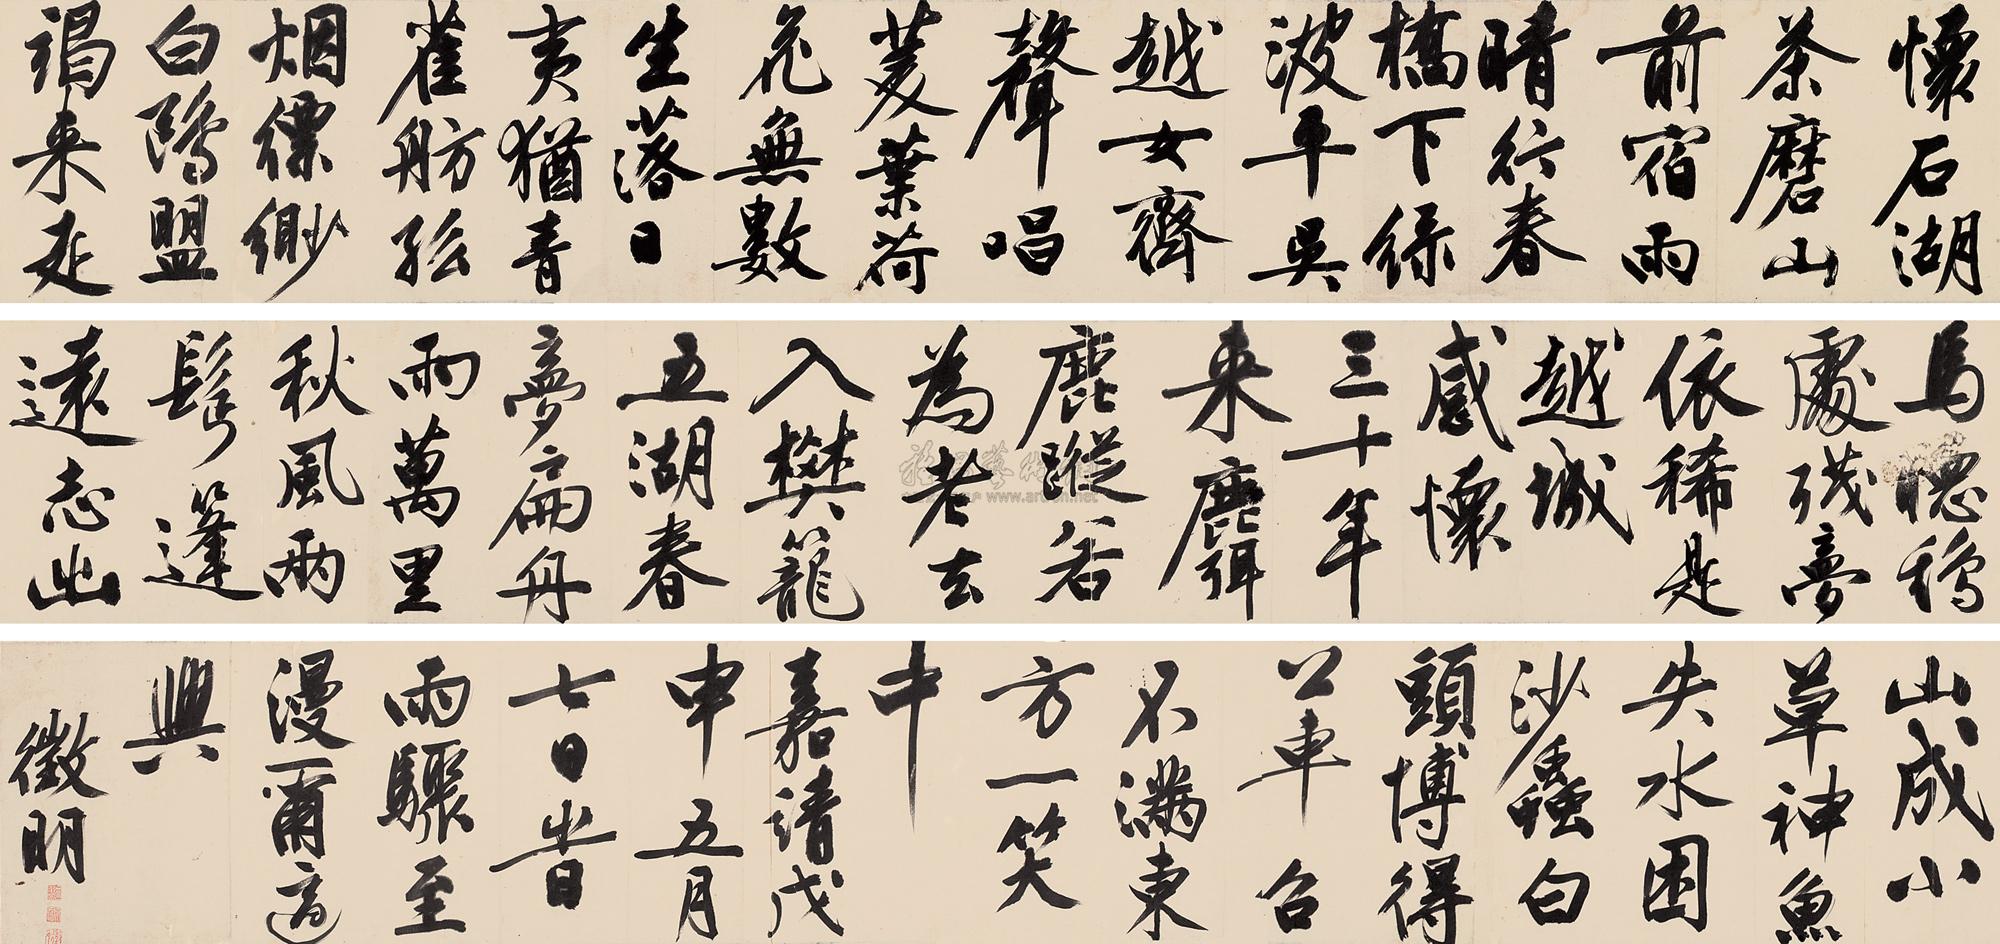 懷石湖
茶磨山
前宿雨
晴行春
橋下綠
波平吳
越女齊
聲唱
菱葉荷
花無數
生落日
夷猶青
雀舫孤
烟縹緲
白鷗盟
朅來走
馬聽鶯
處殘夢
依稀是
越城
感懷
三十年
來麛
鹿蹤若
為老去
入樊籠
五湖春
夢扁舟
雨萬里
秋風兩
鬢蓬
遠志出
山成小
草神魚
失水困
沙蟲白
頭博得
公車召
不滿東
方一笑
中
嘉靖戊
申五月
七日旹
雨驟至
漫爾適
興
徵明
www.artron.net